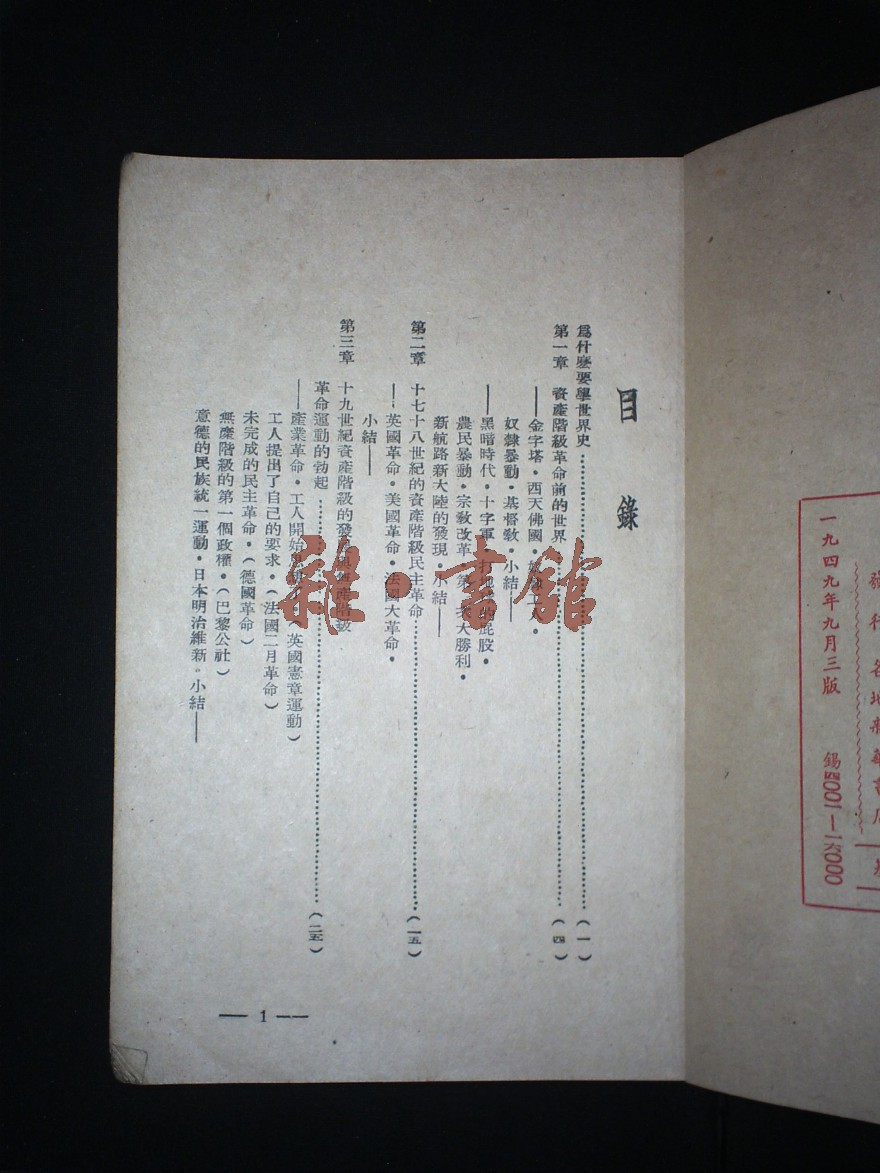 一九四九年九月三版 錫四〇〇一—一六〇〇〇
目錄
爲什麽要學世界史……(一)
第一章 資產階級革命前的世界……(四)
——金字塔·西天佛國·
奴隸暴動·基督教·小結——
——黑暗時代·十字軍·
農民暴動·宗教改革·第一次大勝利·
新航路新大陸的發現·小結——
第二章 十七十八世紀的資產階級民主革命……(一五)
——英國革命·美國革命·法國大革命·
小結——
第三章 十九世紀資產階級的發展與無產階級
革命運動的勃起……(二五)
——產業革命·工人開始(英國憲章運動)
工人提出了自己的要求·(法國二月革命)
未完成的民主革命·(德國革命)
無產階級的第一個政權·(巴黎公社)
意德的民族統一運動·日本明治維新。小結——
— 1 —
雜·書館